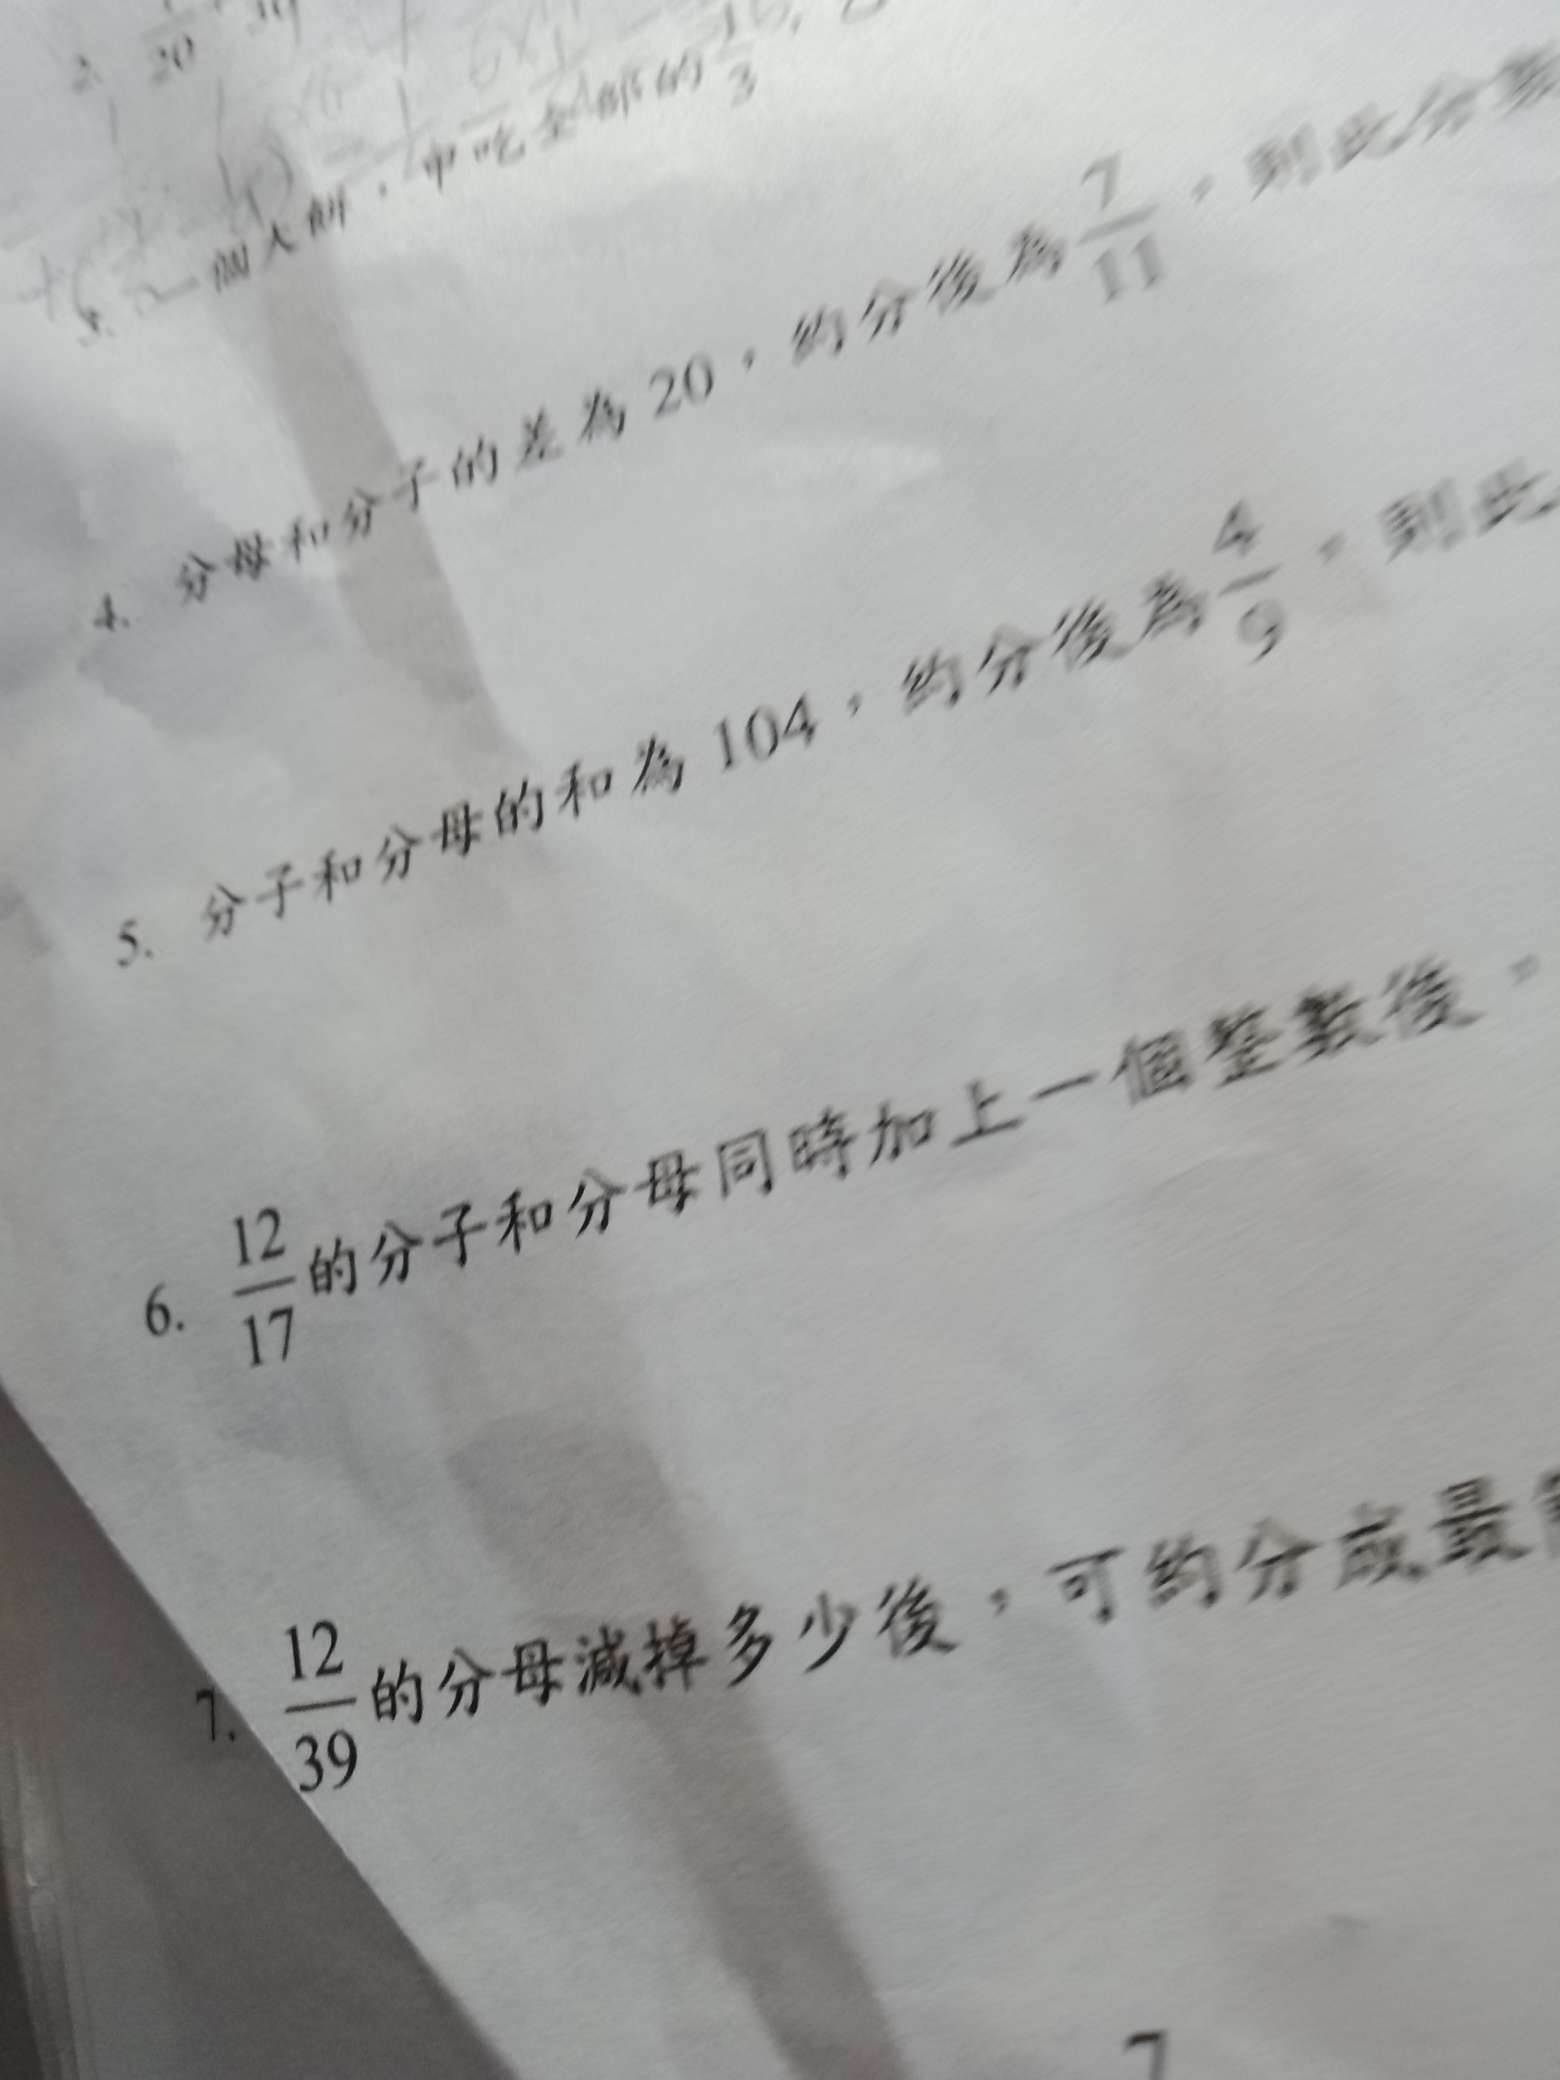 2. 20
3. 一個大餅，甲吃全部的 1/3，
4. 分母和分子的差為 20，約分後為 7/11，則此分數
5. 分子和分母的和為 104，約分後為 4/9，則此
6. 12/17 的分子和分母同時加上一個整數後，
7. 12/39 的分母減掉多少後，可約分成最
7